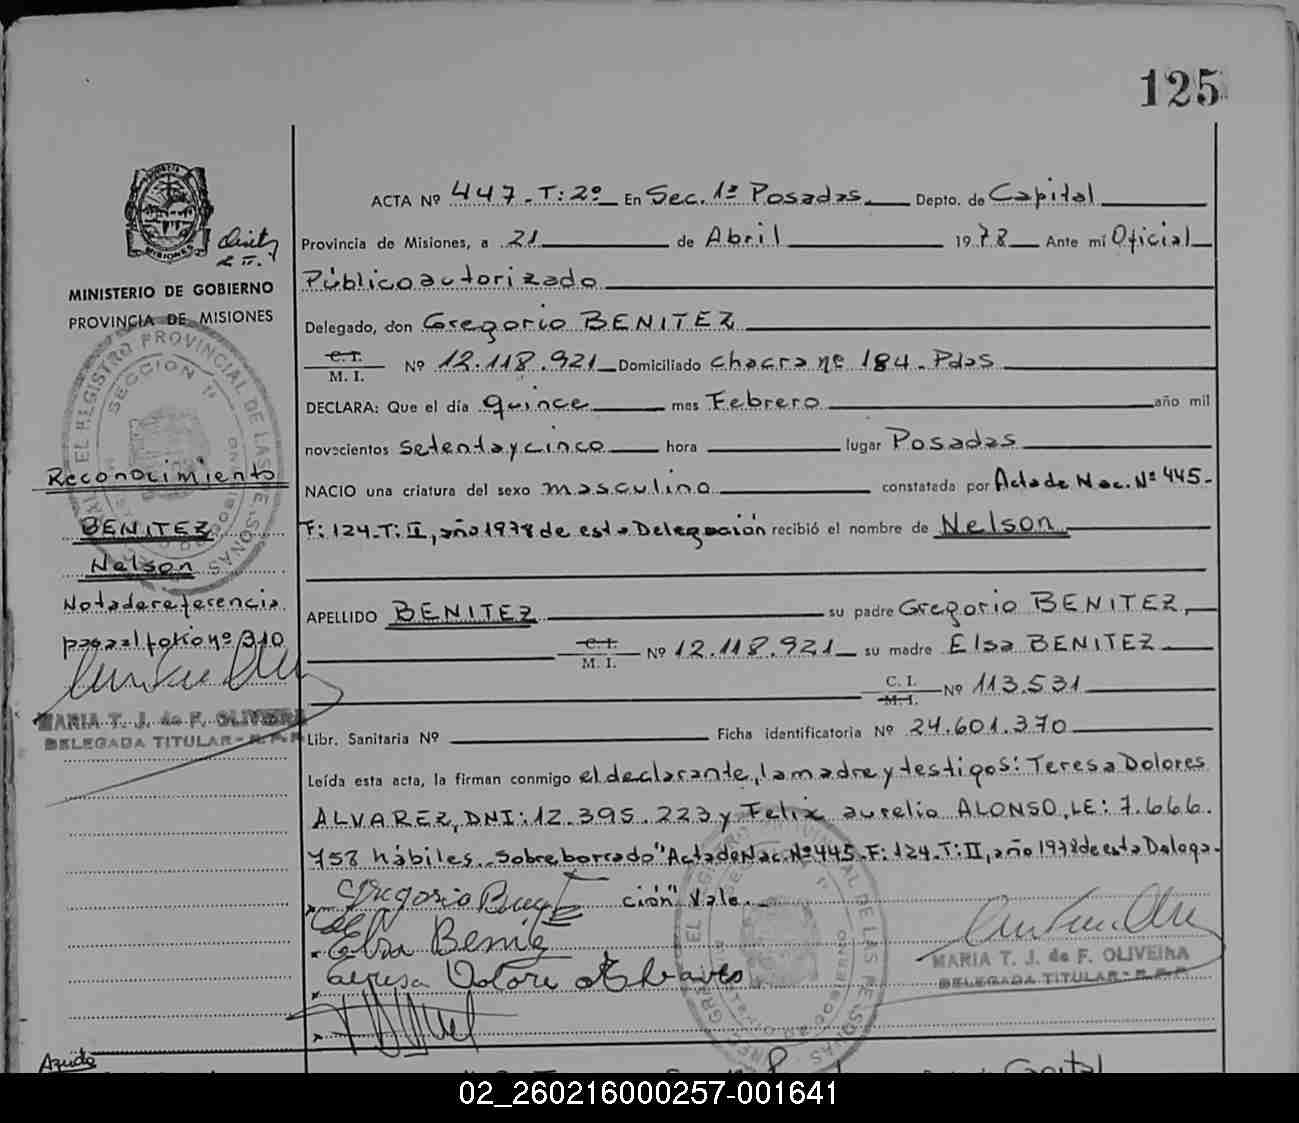 125
ACTA Nº 447-T:2º En Sec. 1ª Posadas Depto. de Capital
Provincia de Misiones, a 21 de Abril 1978 Ante mí Oficial
Público autorizado
MINISTERIO DE GOBIERNO
PROVINCIA DE MISIONES
Delegado, don Gregorio BENITEZ
C.I.
M. I. Nº 12.118.921 Domiciliado chacra nº 184. Pdas
DECLARA: Que el día quince mes Febrero año mil
novecientos setenta y cinco hora lugar Posadas
NACIO una criatura del sexo masculino constatada por Acta de Nac. Nº 445-
F: 124-T: II, año 1978 de esta Delegación recibió el nombre de Nelson
Reconocimiento
BENITEZ
Nelson
Nota de referencia
pasa al folio nº 310
MARIA T. J. de F. OLIVEIRA
DELEGADA TITULAR - R.P.P
APELLIDO BENITEZ su padre Gregorio BENITEZ,
C.I.
M. I. Nº 12.118.921 su madre Elsa BENITEZ
C. I.
M. I. Nº 113.531
Libr. Sanitaria Nº Ficha identificatoria Nº 24.601.370
Leída esta acta, la firman conmigo el declarante, la madre y testigos: Teresa Dolores
ALVAREZ, DNI: 12.395.223 y Felix aurelio ALONSO, LE: 7.666.
758 hábiles. Sobreborrado "Acta de Nac. Nº 445-F: 124-T: II, año 1978 de esta Delega-
ción" Vale.
Elsa Benitez
MARIA T. J. de F. OLIVEIRA
DELEGADA TITULAR - R.P.P
REGISTRO PROVINCIAL DE LAS PERSONAS
SECCION 1ª
02_260216000257-001641